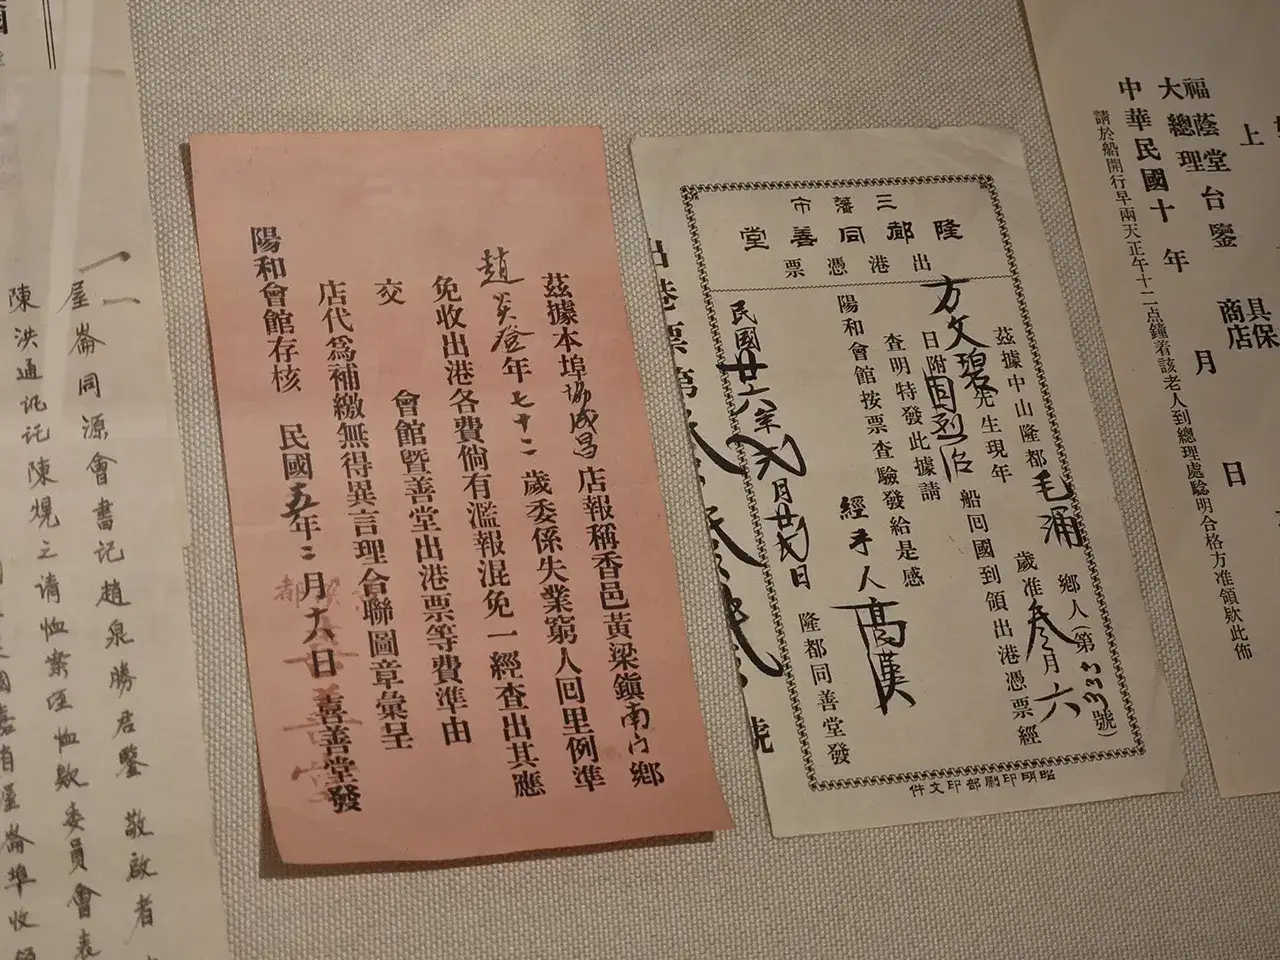 中華民國十年 月 日
大總理
福蔭堂台鑒
上
具保
商店
請於船開行早兩天正午十二点鐘着該老人到總理處驗明合格方准領欵此佈
三藩市
隆都同善堂
出港憑票
茲據中山隆都毛涌鄉人(第333號)
方文碧先生現年 歲准叁月六
日附 船回國到領出港憑票經
查明特發此據請
陽和會館按票查驗發給是感
經手人高漢
民國廿六年 月 日 隆都同善堂發
出港票第
號
昭明印刷部印文件
茲據本埠協成昌店報稱香邑黃梁鎮南门鄉
趙炎登年七十二歲委係失業窮人回里例準
免收出港各費倘有濫報混免一經查出其應
交 會館暨善堂出港票等費準由
店代為補繳無得異言理合聯圖章彙呈
陽和會館存核 民國五年二月十八日 善善堂發
屋崙同源會書记趙泉勝君鑒 敬啟者
陳洪通讬记陳焜之请恤案 恤欵委員會表